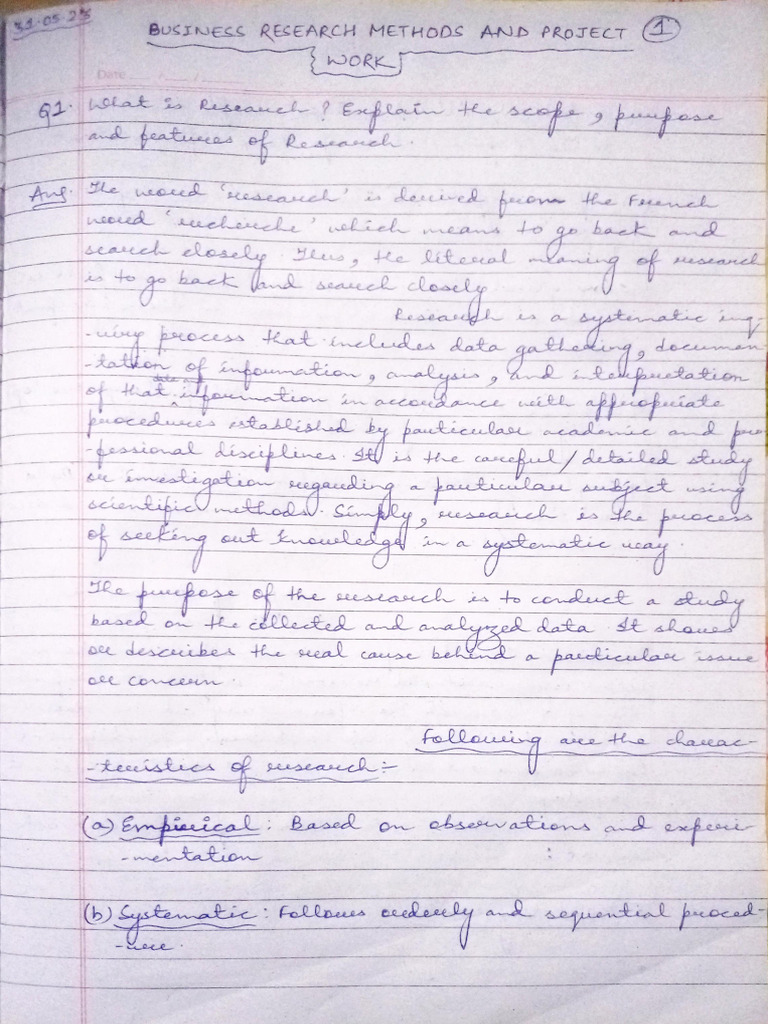 31-05-23
BUSINESS RESEARCH METHODS AND PROJECT 1
WORK
Date
Q1. What is Research? Explain the scope, purpose
and features of Research.
Ans. The word 'research' is derived from the French
word 'recherche' which means to go back and
search closely. Thus, the literal meaning of research
is to go back and search closely
Research is a systematic inq-
-uiry process that includes data gathering, documen
-tation of information, analysis, and interpretation
of that information in accordance with appropriate
procedures established by particular academic and pro
-fessional disciplines. It is the careful/detailed study
or investigation regarding a particular subject using
scientific methods. Simply, research is the process
of seeking out knowledge in a systematic way.
The purpose of the research is to conduct a study
based on the collected and analyzed data. It shows
or describes the real cause behind a particular issue
or concern.
Following are the charac-
-teristics of research:-
(a) Empirical: Based on observations and experi-
-mentation
(b) Systematic: Follows orderly and sequential proced-
-ure.